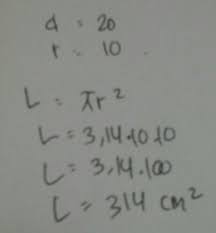 d = 20
r = 10
L = πr²
L = 3,14.10.10
L = 3,14.100
L = 314 cm²